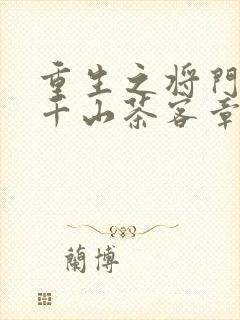 重生之将門
千山茶客章
蘭博